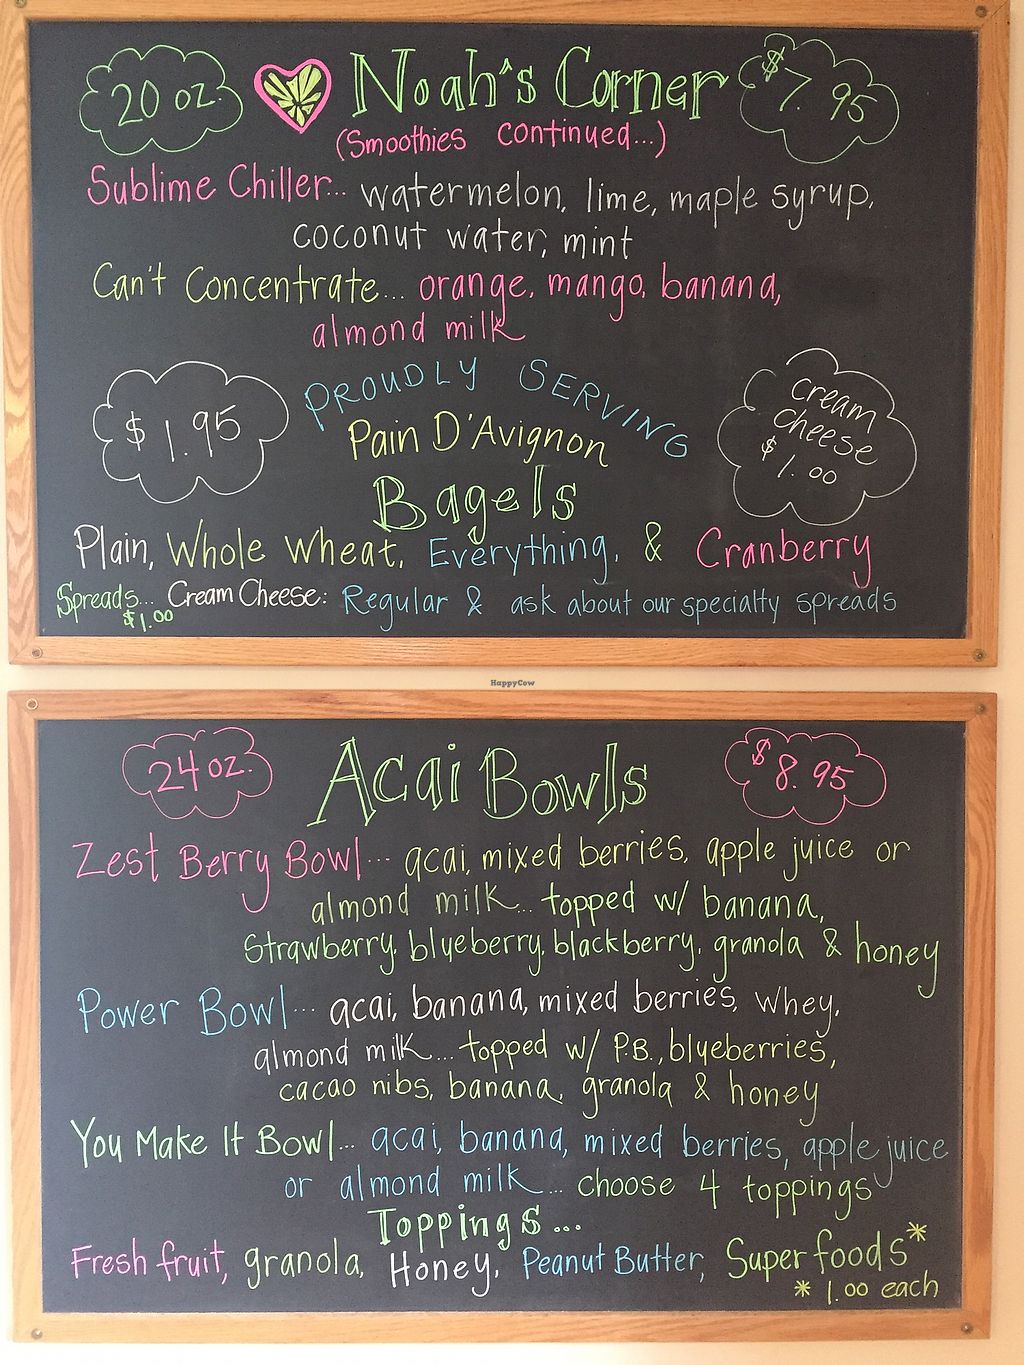 20 oz. Noah's Corner $7.95
(Smoothies continued...)
Sublime Chiller... watermelon, lime, maple syrup,
coconut water, mint
Can't Concentrate... orange, mango, banana,
almond milk
PROUDLY SERVING
$1.95
Pain D'Avignon
cream
cheese
$1.00
Bagels
Plain, Whole Wheat, Everything, & Cranberry
Spreads... Cream Cheese: Regular & ask about our specialty spreads
$1.00
HappyCow
24 oz. Acai Bowls $8.95
Zest Berry Bowl... acai, mixed berries, apple juice or
almond milk... topped w/ banana,
Strawberry, blueberry, blackberry, granola & honey
Power Bowl... acai, banana, mixed berries, whey,
almond milk... topped w/ P.B., blueberries,
cacao nibs, banana, granola & honey
You Make It Bowl... acai, banana, mixed berries, apple juice
or almond milk... choose 4 toppings
Toppings...
Fresh fruit, granola, Honey, Peanut Butter, Superfoods*
* 1.00 each